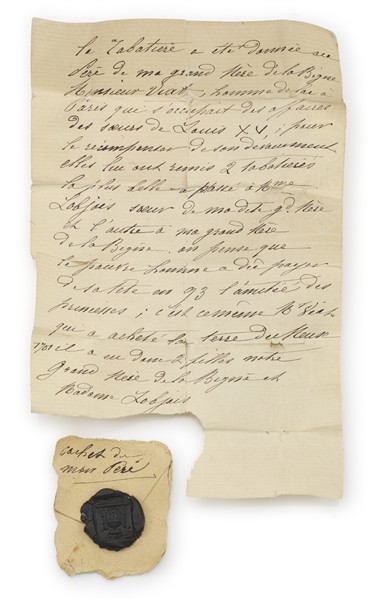 la Tabatiere a eté donnée au
Père de ma grand Mère de la Bigne
Monsieur Viat, homme de loi à
Paris qui s'occupait des affaires
des sœurs de Louis XV ; pour
le recompenser de son dévouement
elles lui ont remis 2 tabatières
la plus belle a passé à Mme
Lobjois sœur de ma dte gd Mère
et l'autre à ma grand Mère
de la Bigne, on pense que
le pauvre homme a dû payer
de sa tête en 93 l'amitié des
princesses ; c'est ce même Mr Viat
qui a acheté la terre du
il a eu donc 2 filles notre
Grand Mère de la Bigne et
Madame Lobjois
cachet de
mon Père